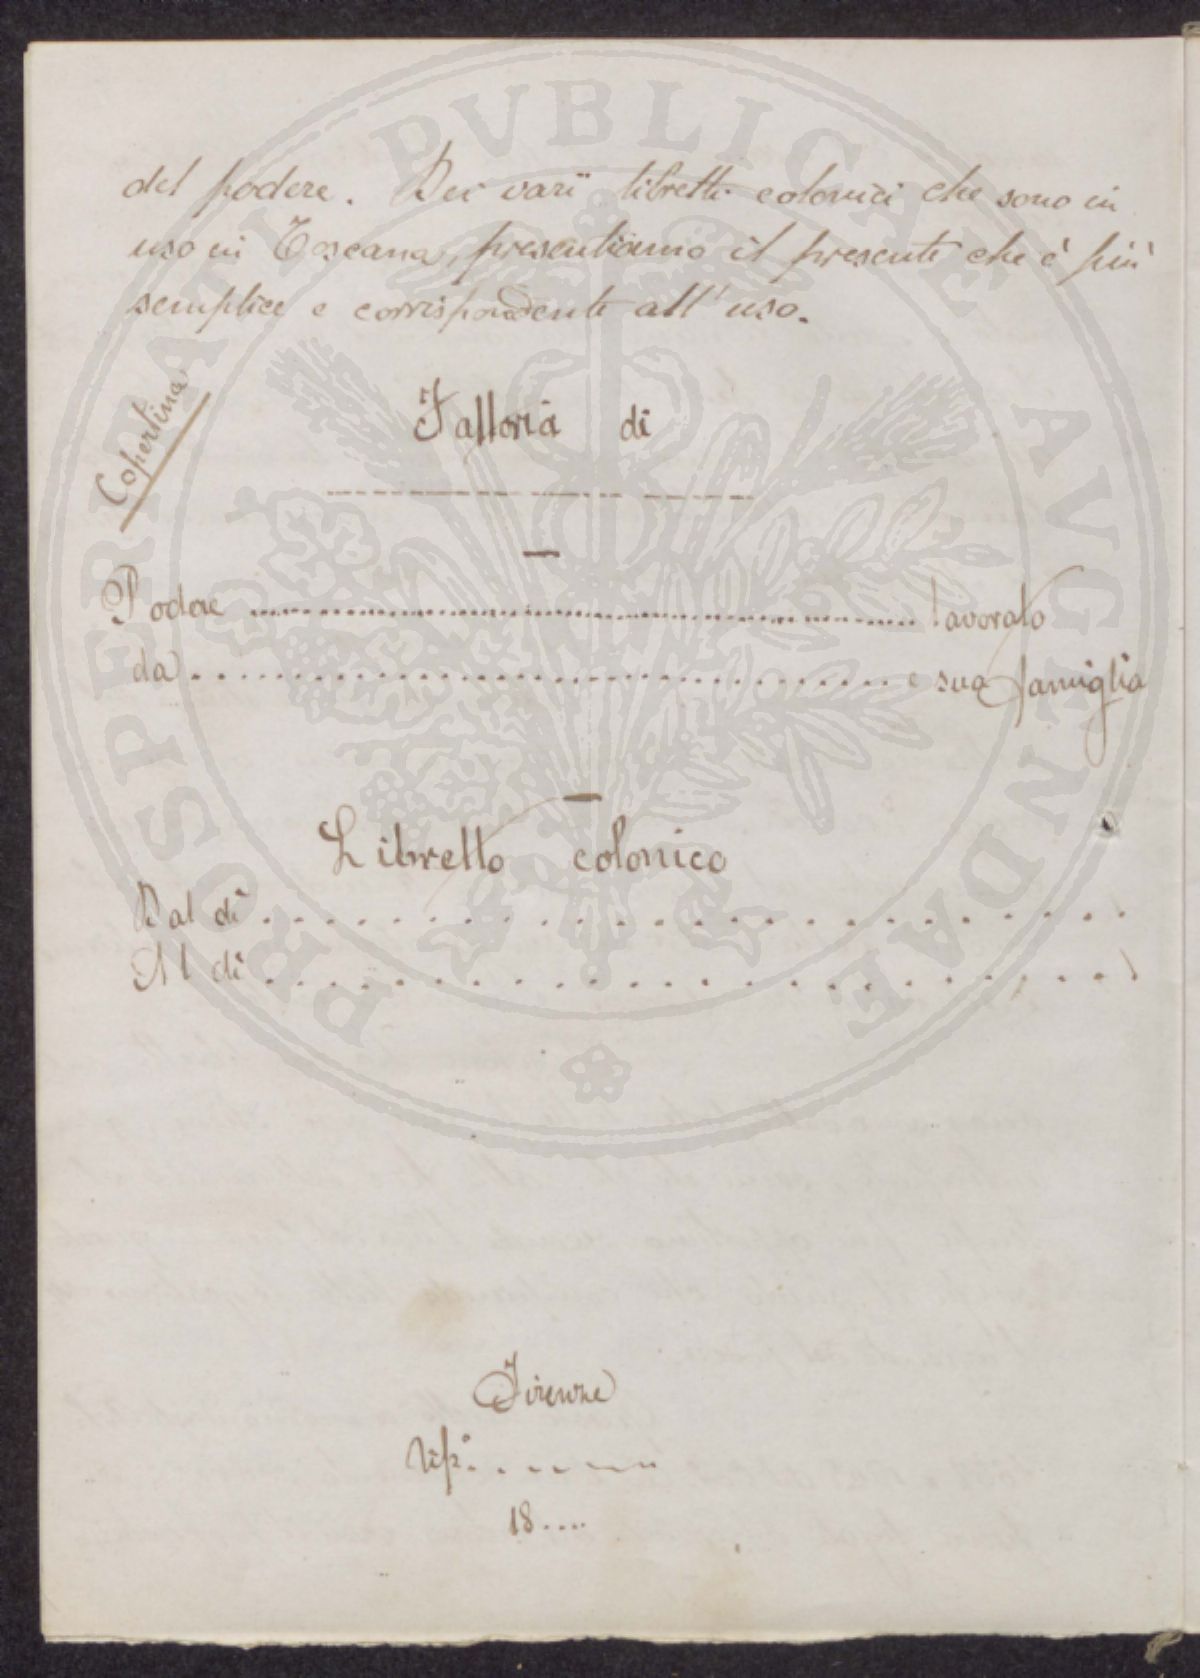 del podere. Dei varii libretti colonici che sono in
uso in Toscana, presentiamo il presente che è più
semplice e corrispondente all'uso.
Copertina
Fattoria di
Podere lavorato
da e sua famiglia
Libretto colonico
Dal dì
Al dì
Firenze
Tip.
18....
PROSPERITATI PVBLICAE AVGENDAE